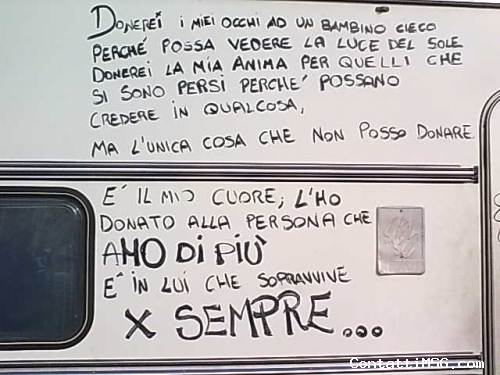 DONEREI I MIEI OCCHI AD UN BAMBINO CIECO
PERCHÉ POSSA VEDERE LA LUCE DEL SOLE
DONEREI LA MIA ANIMA PER QUELLI CHE
SI SONO PERSI PERCHE' POSSANO
CREDERE IN QUALCOSA,
MA L'UNICA COSA CHE NON POSSO DONARE
E' IL MIO CUORE, L'HO
DONATO ALLA PERSONA CHE
AMO DI PIÙ
E' IN LUI CHE SOPRAVVIVE
X SEMPRE...
ContattiMSG.com